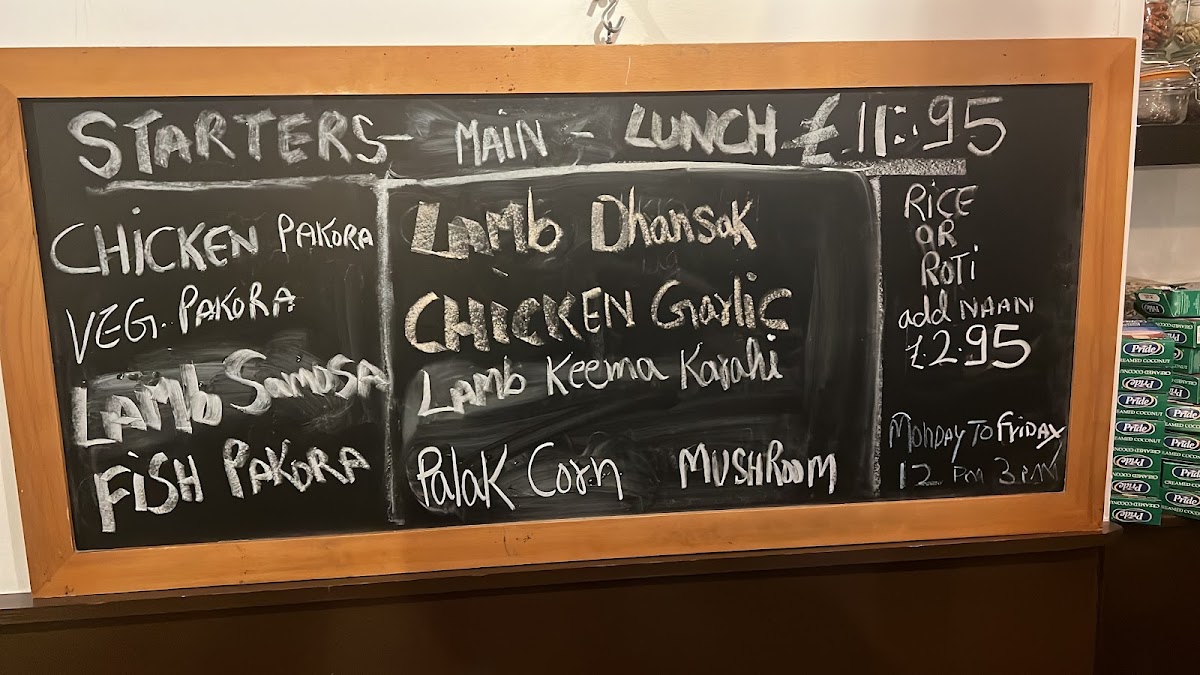 STARTERS - MAIN - LUNCH £11.95
CHICKEN PAKORA
VEG. PAKORA
LAMB SAMOSA
FISH PAKORA
Lamb Dhansak
CHICKEN Garlic
Lamb Keema Karahi
Palak Corn MUSHROOM
RICE
OR
ROTi
add NAAN
£2.95
MONDAY TO FRIDAY
12 PM 3 PM
Pride
CREAMED COCONUT
Pride
Pride
Pride
Pride
Pride
Pride